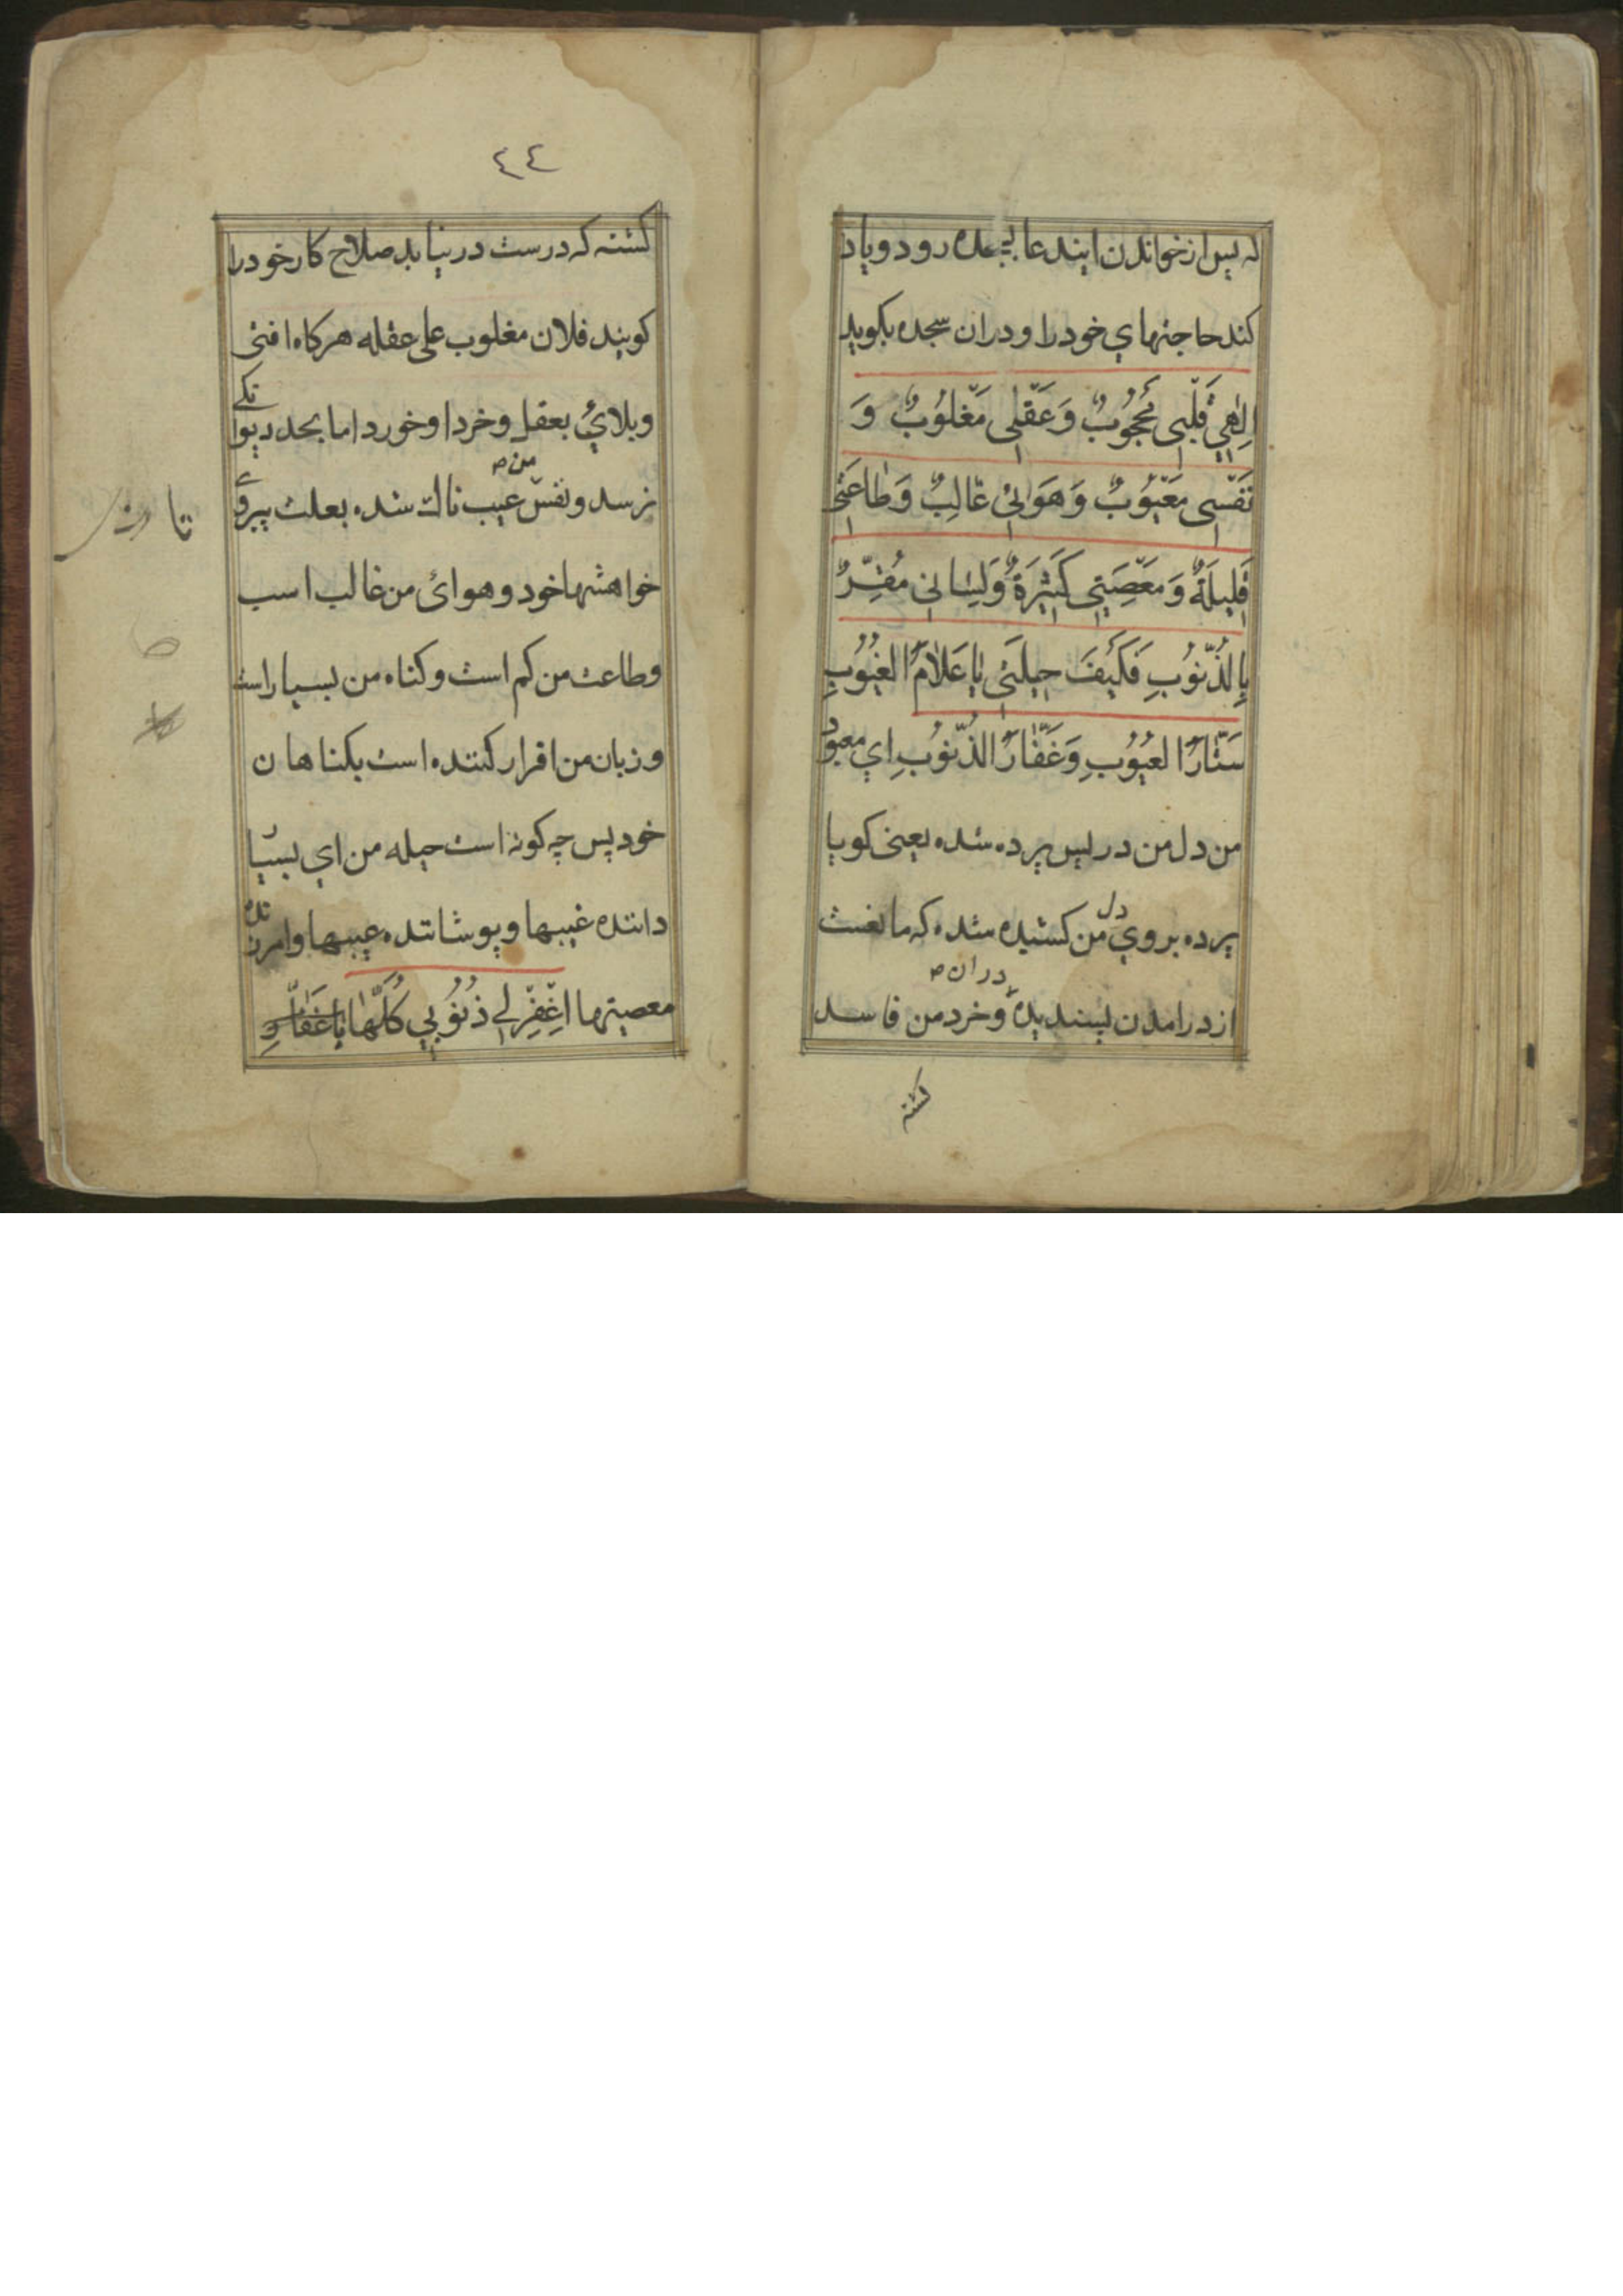 که پس از خواندن ایندعا بسجده رود و یاد
کند حاجتهاي خود را و دران سجده بکوید
اِلٰهِي قَلْبِی مَحْجُوبٌ وَعَقْلِی مَغْلُوبٌ وَ
نَفْسِی مَعْیُوبٌ وَهَوَائِی غَالِبٌ وَطَاعَتِی
قَلِیلَةٌ وَمَعْصِیَتِی کَثِیرَةٌ وَلِسَانِی مُقِرٌّ
بِالذُّنُوبِ فَکَیْفَ حِیلَتِی یَا عَلَّامَ الغُیُوبِ
سَتَّارَ العُیُوبِ وَغَفَّارَ الذُّنُوبِ اي معبود
من دل من در پس پرده شده یعنی کویا
پرده بروي دل من کشیده شده که مانعست
دران
از درامدن پسندیده وخرد من فاسد
کشته
٤٤
کشته که درست درنیابد صلاح کار خود را
کویند فلان مغلوب علی عقله هرکاه افتی
وبلائي بعقل وخرد او خورد اما بحد دیوانکے
نرسد ونفس من عیب ناك شده بعلت پیروے
خواهشها خود وهوائ من غالب است
وطاعت من کم است وکناه من بسیار است
وزبان من اقرار کننده است بکناهان
خود پس چه کونه است حیله من اي بسیار
داننده غیبها وپوشاننده عیبها وامرزنده
معصیتها اغْفِرْلِي ذُنُوبِي کُلَّهَا یَا غَفَّارُ